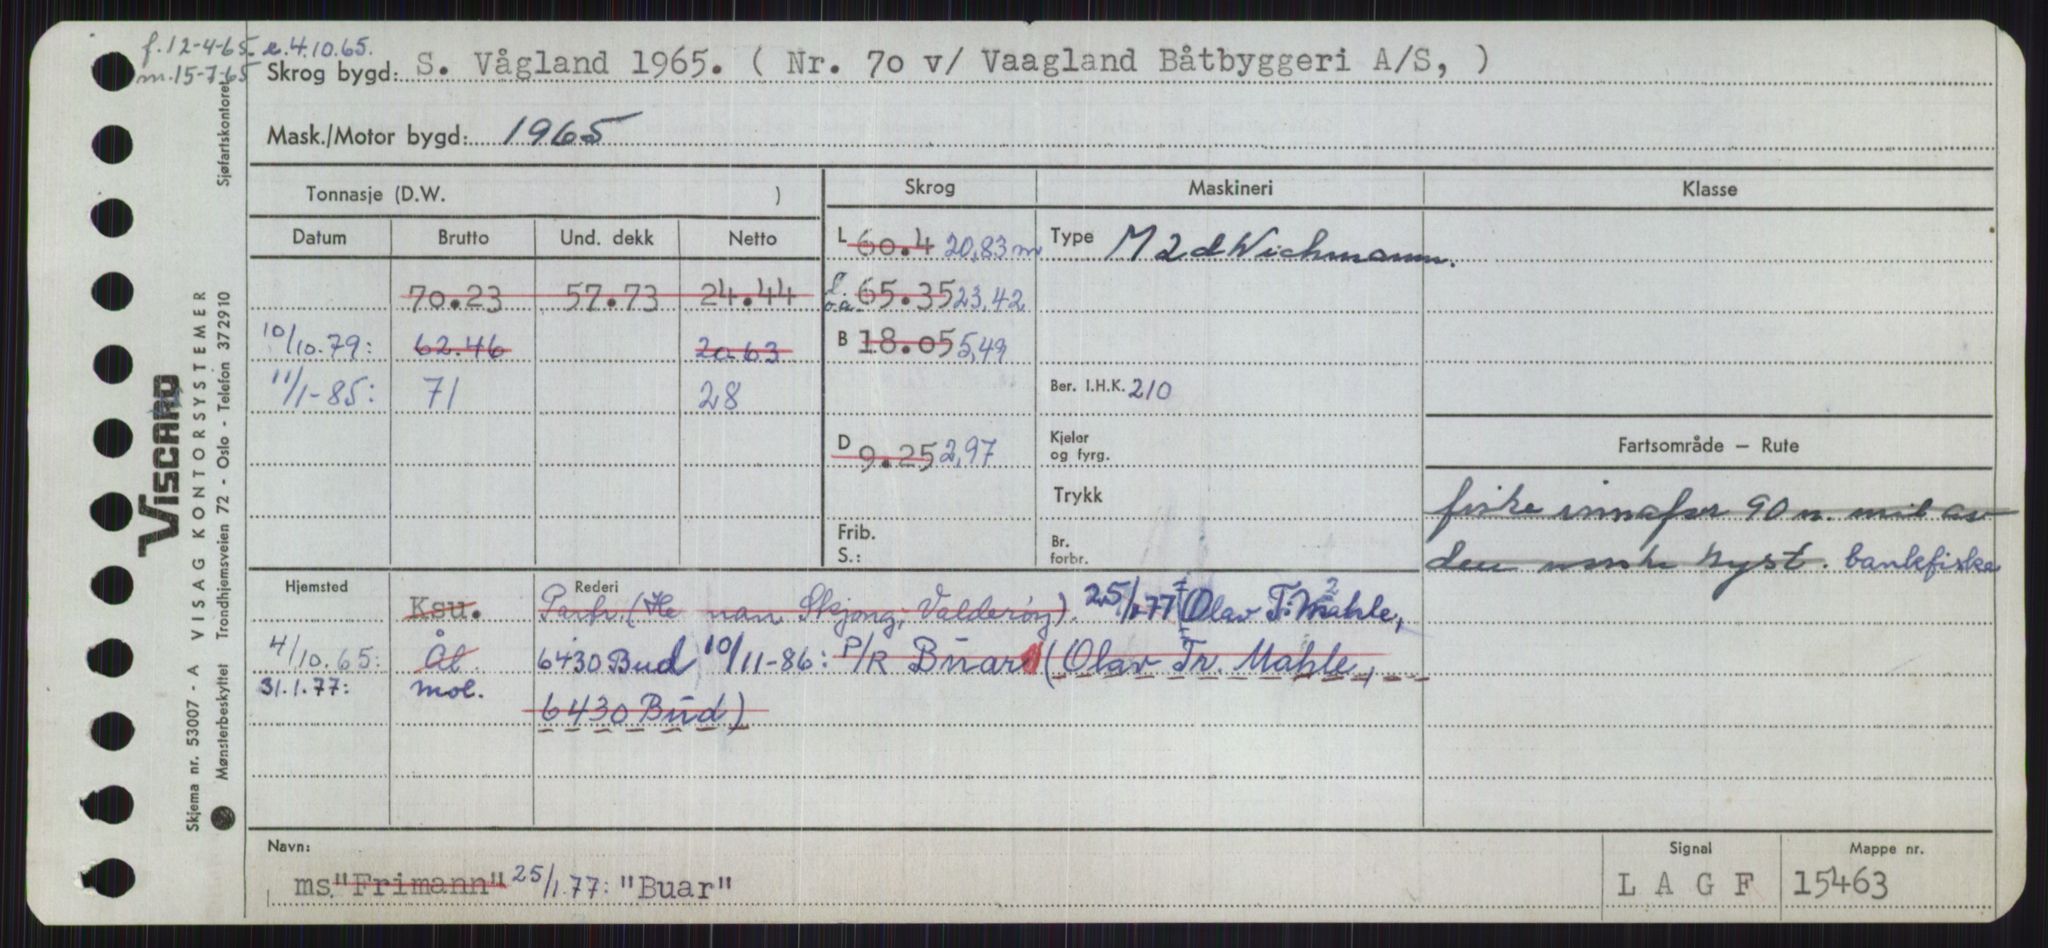 f. 12-4-65. e.4.10.65.
m. 15-7-65
Skrog bygd: S. Vågland 1965. ( Nr. 7o v/ Vaagland Båtbyggeri A/S, )
Mask./Motor bygd: 1965
Tonnasje (D.W. )
Skrog Maskineri Klasse
Datum Brutto Und. dekk Netto
L 6o.4 20,83 m Type M 2 d Wichmann.
7o.23 57.73 24.44 L. o.a. 65.35 23,42
10/10.79: 62.46 20.63 B 18.o5 5,49
11/1-85: 71 28 Ber. I.H.K. 210
D 9.25 2,97 Kjeler og fyrg.
Fartsområde – Rute
Trykk
fiske innafor 90 n. mil av
Frib. S.: Br. forbr.
den norske kyst. bankfiske
Hjemsted Rederi
Ksu. Partr. (He man Skjong, Valderöy). 25/1-77: (Olav T. Mahle,
4/10.65: Ål 6430 Bud 10/11-86: P/R Buar (Olav Tr. Mahle,
31.1.77: mol. 6430 Bud)
Navn: Signal Mappe nr.
ms. "Frimann" 25/1.77: "Buar" L A G F 15463
Sjøfartskontoret
VISCARD
VISAG KONTORSYSTEMER
Trondhjemsveien 72 - Oslo - Telefon 372910
Skjema nr. 53007 - A
Mønsterbeskyttet